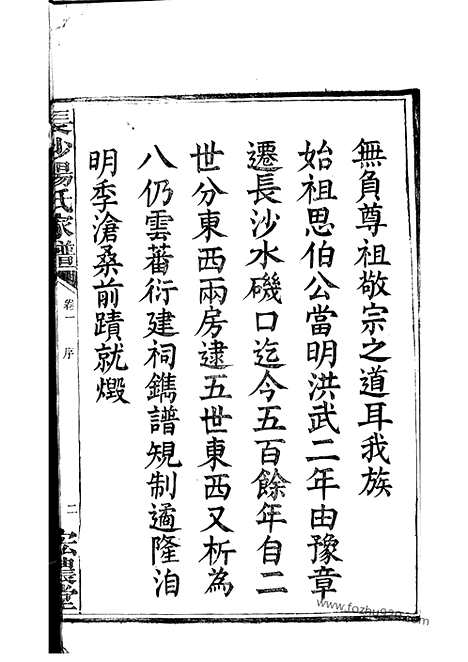 無負尊祖敬宗之道耳我族
始祖思伯公當明洪武二年由豫章
遷長沙水磯口迄今五百餘年自二
世分東西兩房逮五世東西又析為
八仍雲蕃衍建祠鐫譜規制遹隆洎
明季滄桑前蹟就燬
長沙楊氏家譜
卷一 序
二
宏農堂
https://www.fozhu920.com